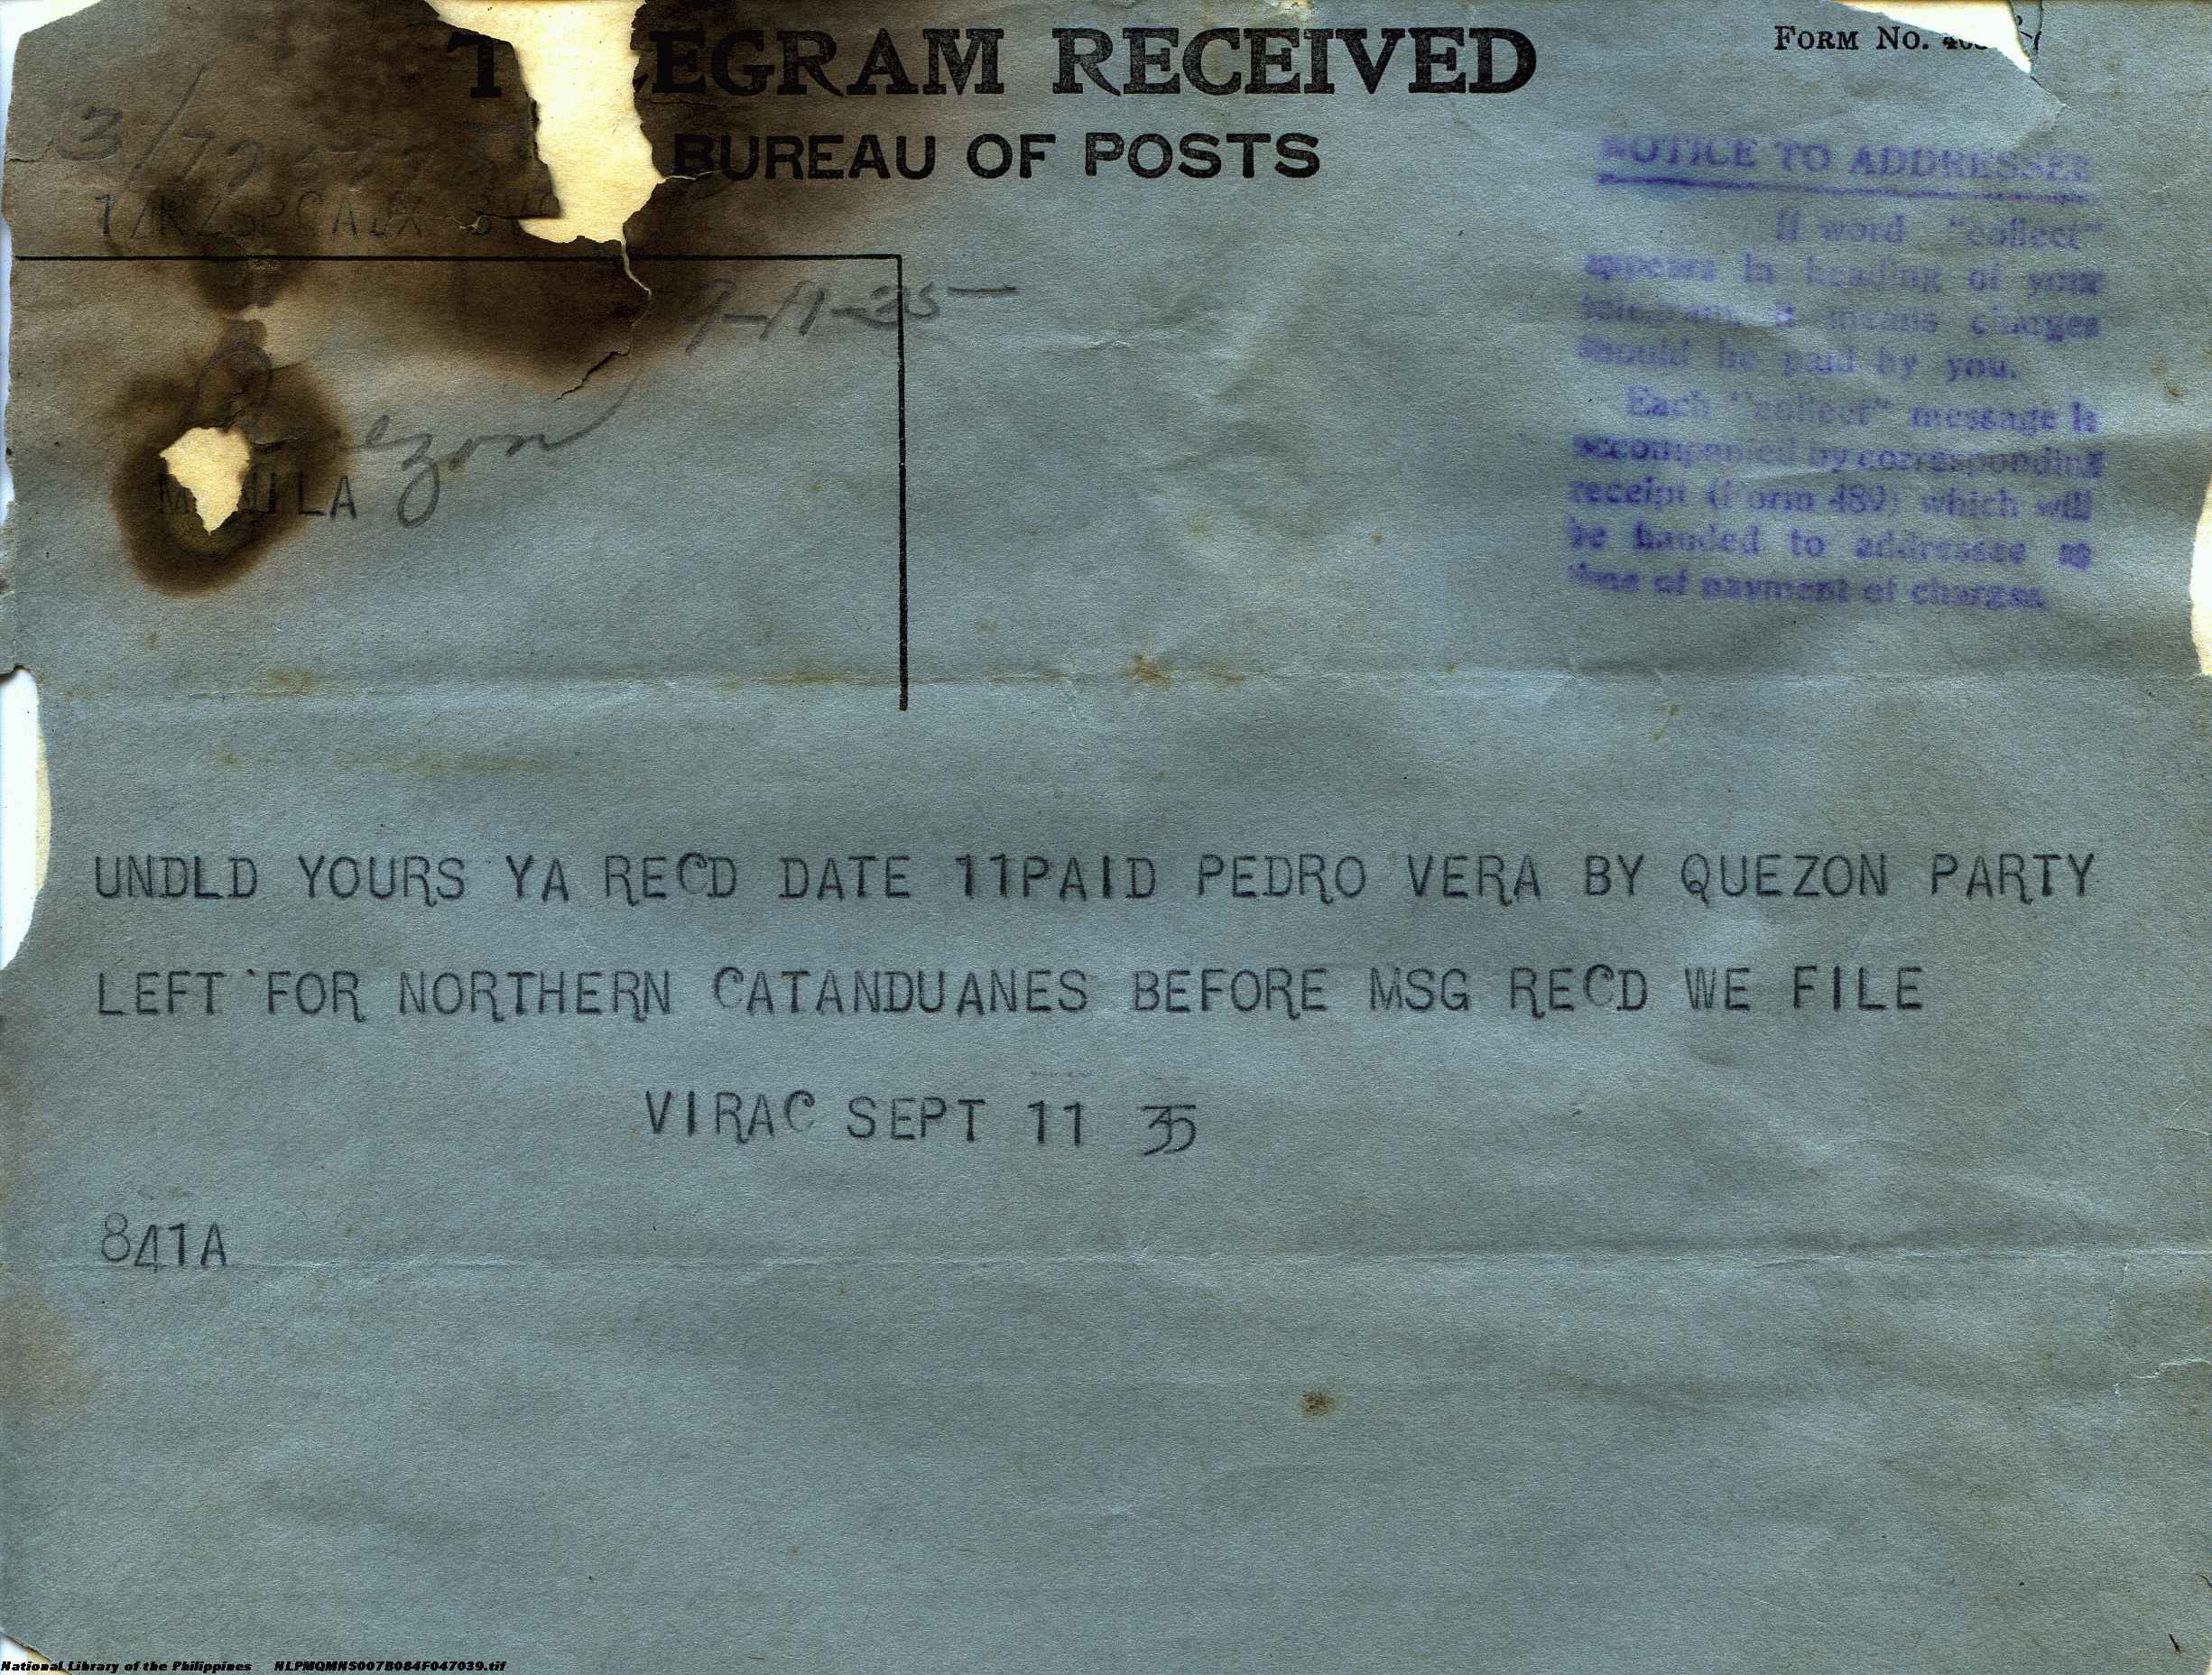 TELEGRAM RECEIVED
FORM No.
BUREAU OF POSTS
NOTICE TO ADDRESSEE
If word "collect"
appears in heading of your
telegram, it means charges
should be paid by you.
Each "collect" message is
accompanied by corresponding
receipt (Form 489) which will
be handed to addressee at
time of payment of charges.
9-11-35
Quezon
MANILA
UNDLD YOURS YA RECD DATE 11PAID PEDRO VERA BY QUEZON PARTY
LEFT FOR NORTHERN CATANDUANES BEFORE MSG RECD WE FILE
VIRAC SEPT 11 35
841A
National Library of the Philippines NLPMQMNS007B084F047039.tif